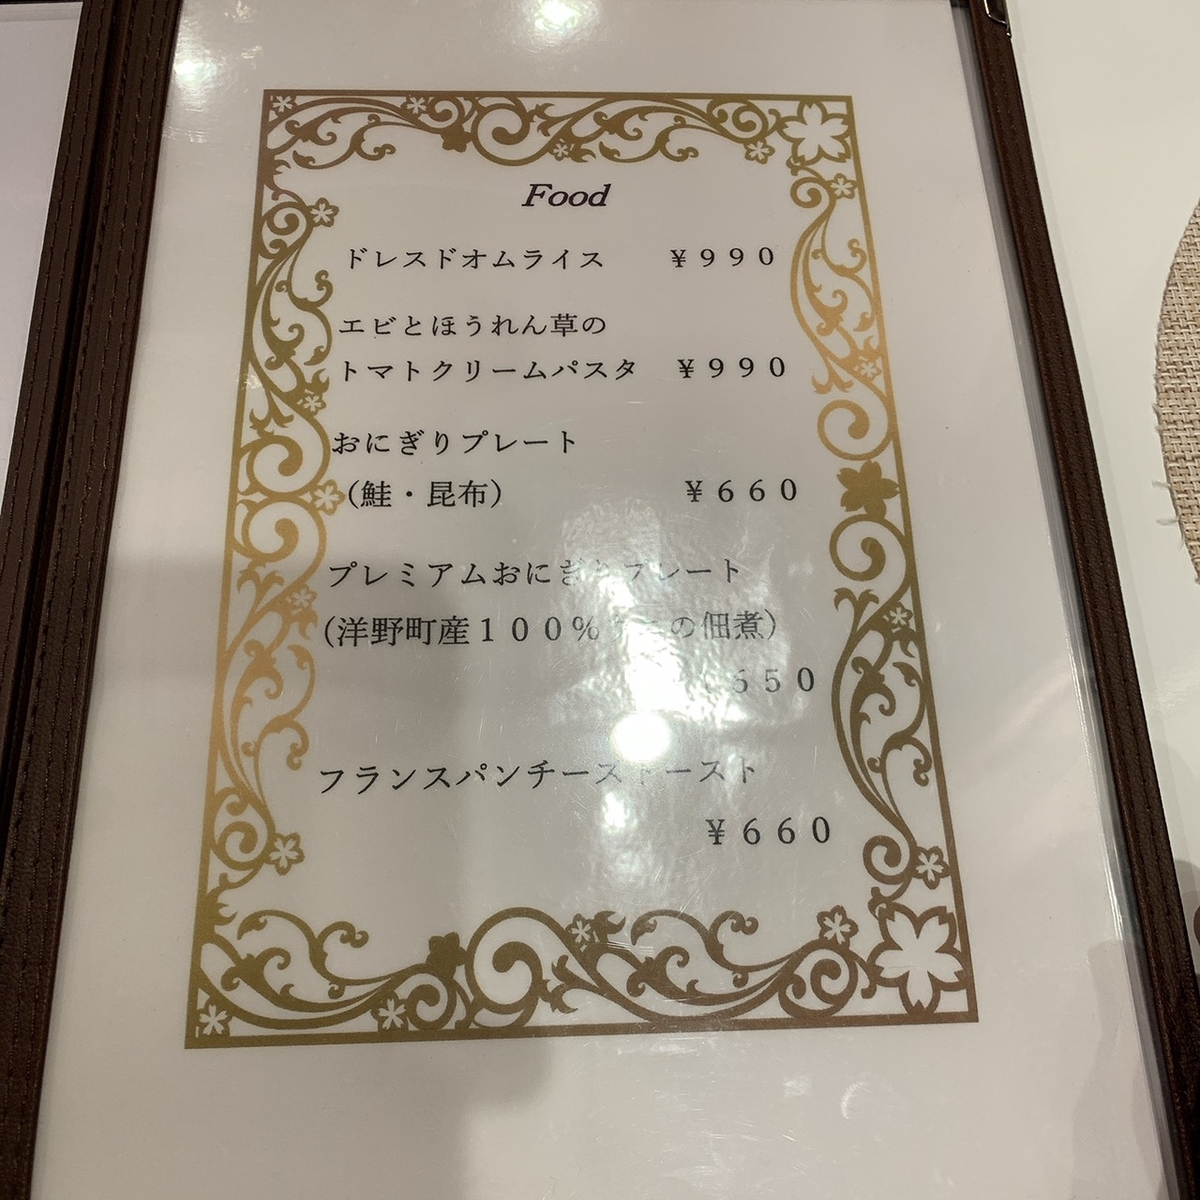 Food
ドレスドオムライス ￥９９０
エビとほうれん草の
トマトクリームパスタ ￥９９０
おにぎりプレート
（鮭・昆布） ￥６６０
プレミアムおにぎりプレート
（洋野町産１００％の佃煮）
６５０
フランスパンチーズトースト
￥６６０